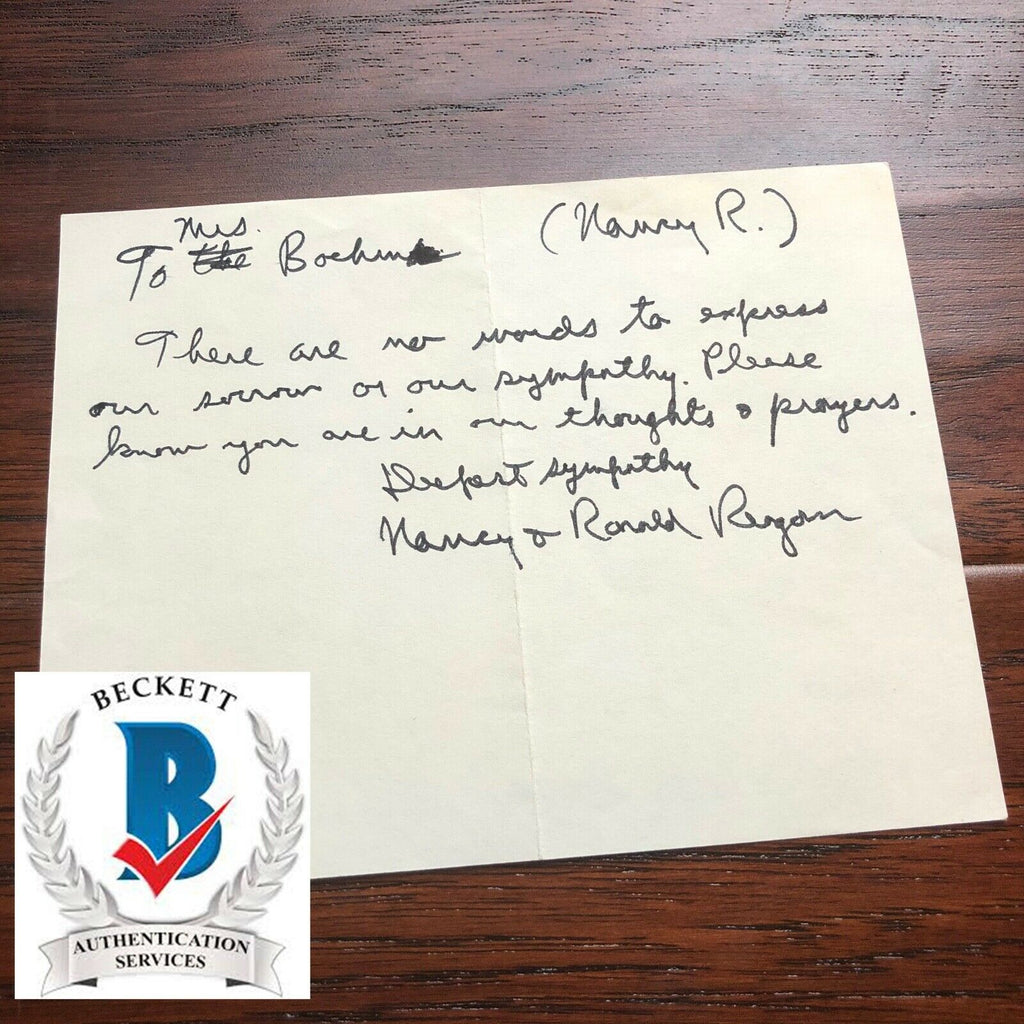 Mrs.
To the Boehm
(Nancy R.)
There are no words to express
our sorrow or our sympathy. Please
know you are in our thoughts & prayers.
Deepest sympathy
Nancy & Ronald Reagan
BECKETT
B
AUTHENTICATION
SERVICES